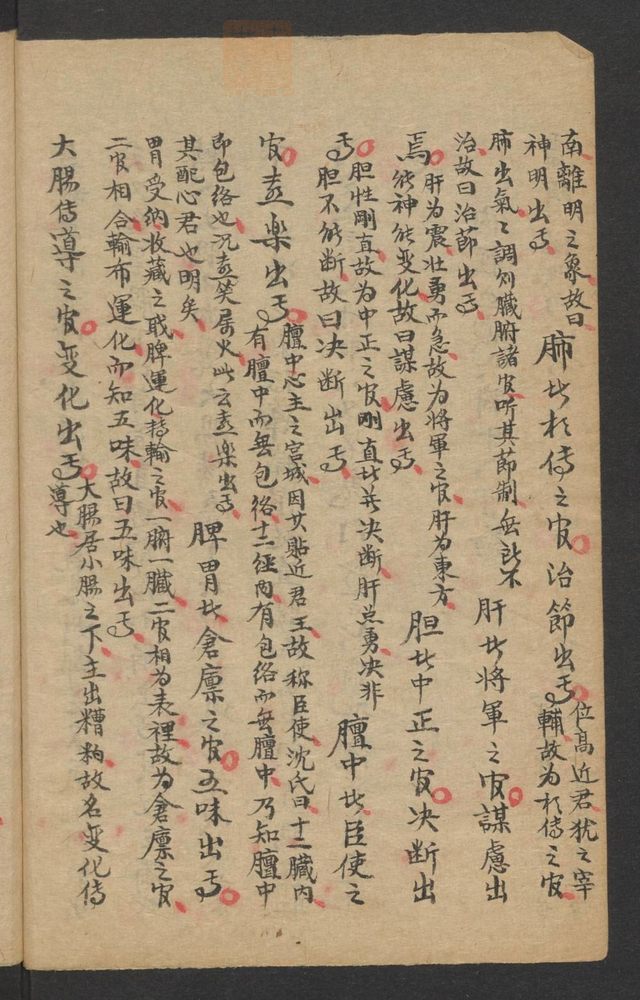 南離明之象故曰
神明出焉
肺者相傅之官治節出焉
位高近君犹之宰
輔故為相傅之官
肺出氣〻調則臟腑諸官听其節制無所不
治故曰治節出焉
肝者將軍之官謀慮出
焉
肝为震壮勇而急故为將軍之官肝为東方
能神能变化故曰謀慮出焉
胆者中正之官决断出
焉
胆性剛直故为中正之官剛直者并决断肝虽勇决非
胆不能断故曰决断出焉
膻中者臣使之
官喜楽出焉
膻中心主之宮城因其貼近君王故称臣使沈氏曰十二臟内
有膻中而無包络十二径内有包络而無膻中乃知膻中
即包络也况喜笑属火此云喜楽出焉
其配心君也明矣
脾胃者倉廪之官五味出焉
胃受纳收藏之职脾運化转輸之官一腑一臟二官相为表裡故为倉廪之官
二官相合輸布運化而知五味故曰五味出焉
大腸傳導之官变化出焉
大腸居小腸之下主出糟粕故名变化傳
導也